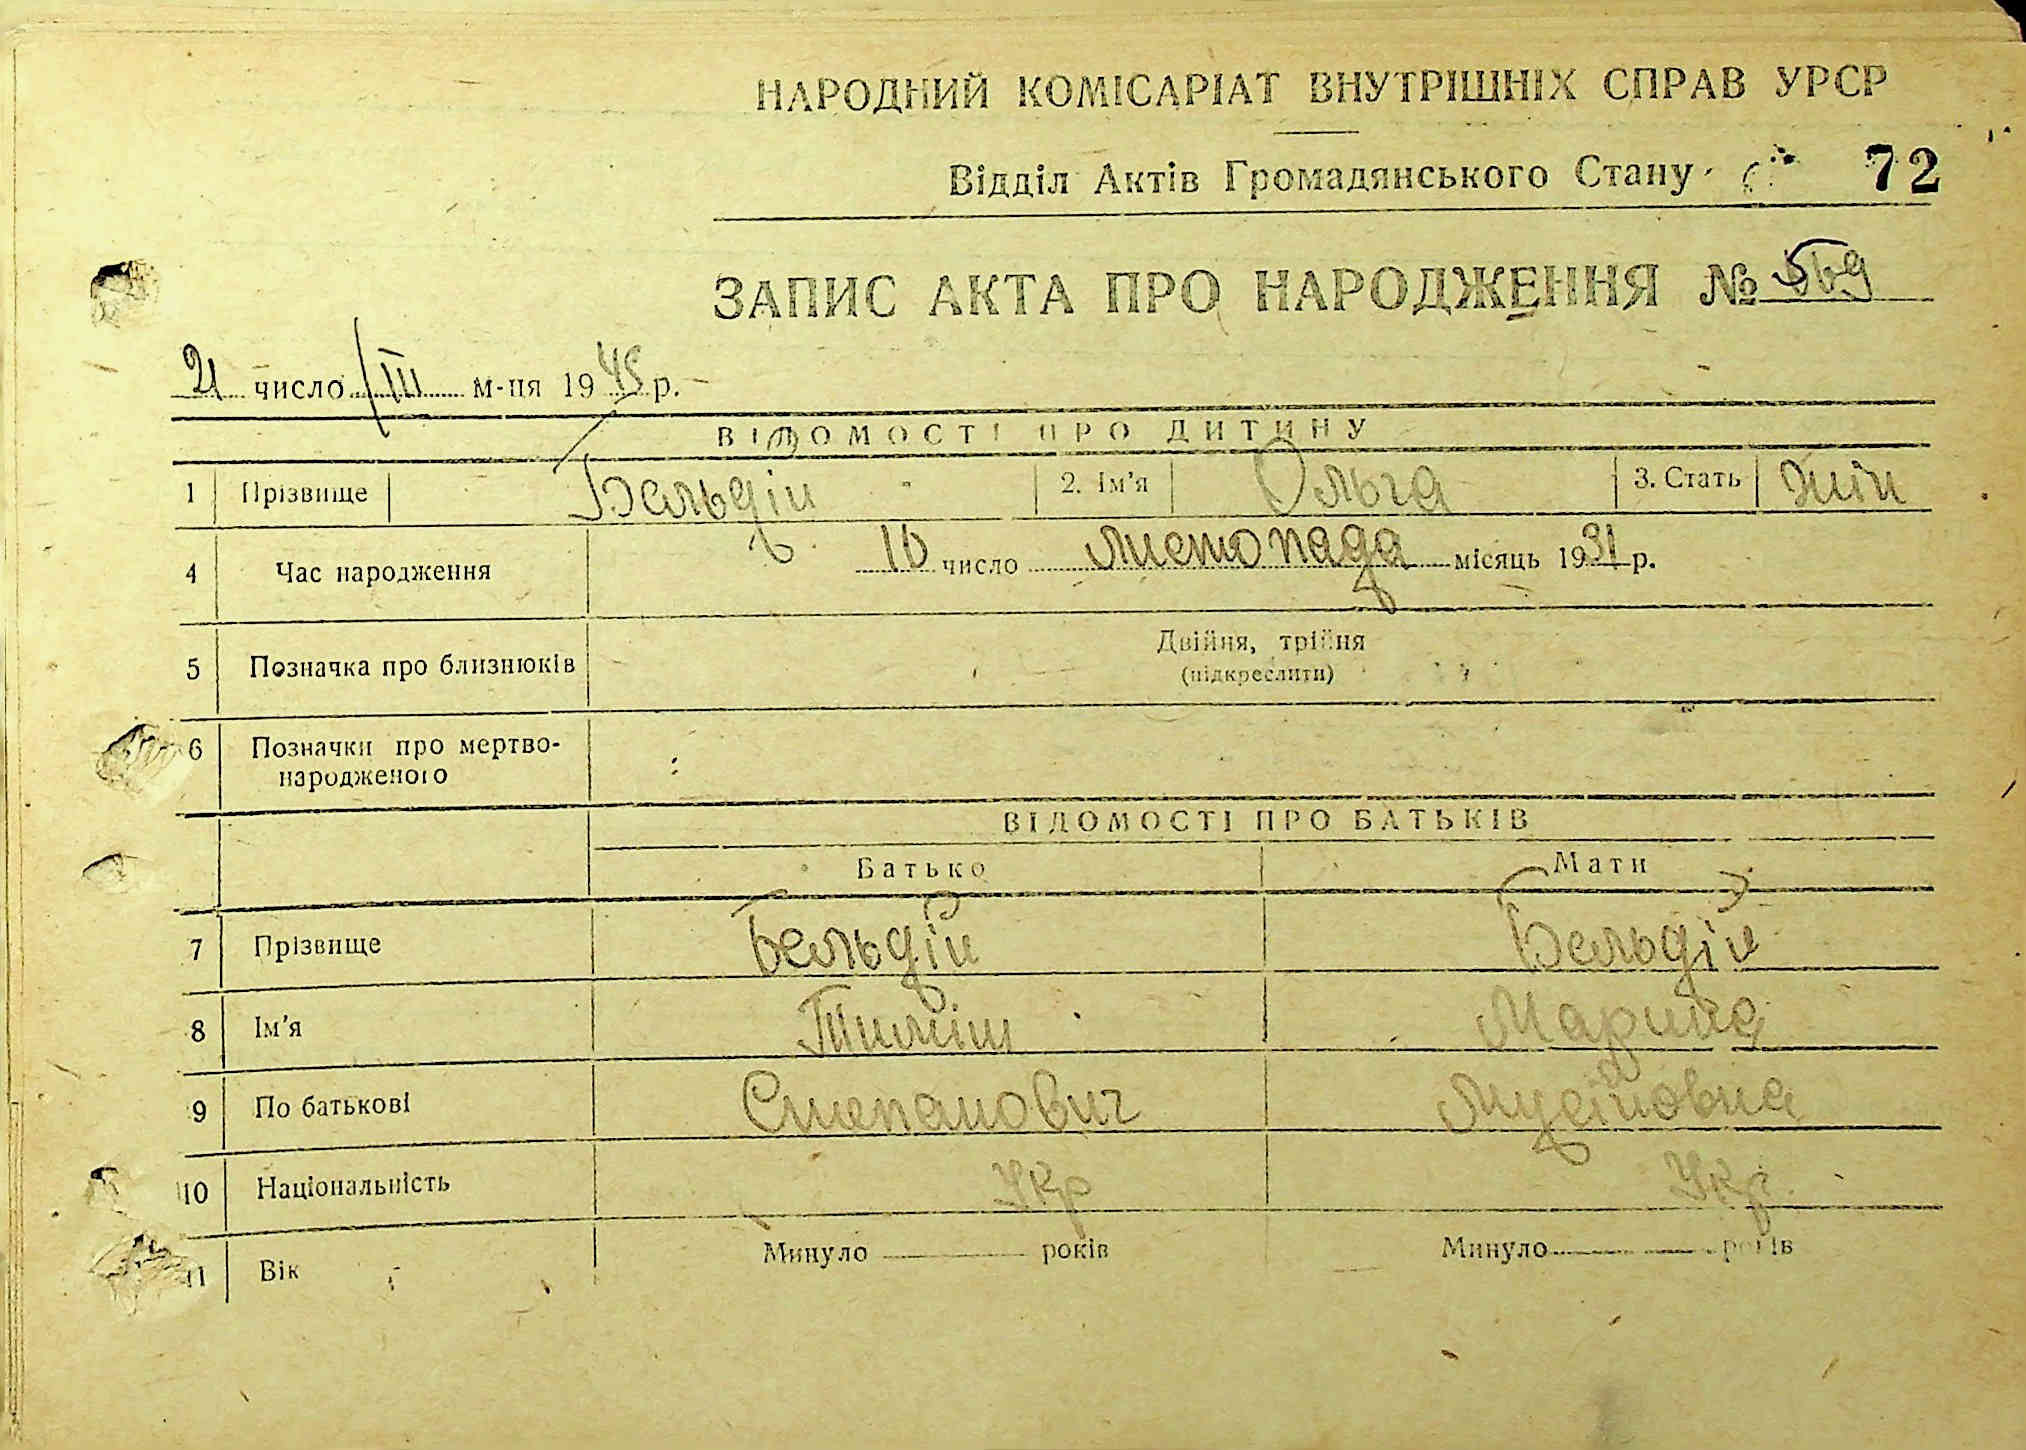 НАРОДНИЙ КОМІСАРІАТ ВНУТРІШНІХ СПРАВ УРСР
Відділ Актів Громадянського Стану 72
ЗАПИС АКТА ПРО НАРОДЖЕННЯ № 569
21 число III м-ця 1945 р.
ВІДОМОСТІ ПРО ДИТИНУ
1 Прізвище Бельдій 2. Ім'я Ольга 3. Стать жін
4 Час народження 10 число листопада місяць 1931 р.
5 Позначка про близнюків Двійня, трійня
(підкреслити)
6 Позначки про мертво-
народженого
ВІДОМОСТІ ПРО БАТЬКІВ
Батько Мати
7 Прізвище Бельдій Бельдій
8 Ім'я Тиміш Марина
9 По батькові Степанович Мусіївна
10 Національність Укр Укр.
11 Вік Минуло років Минуло років